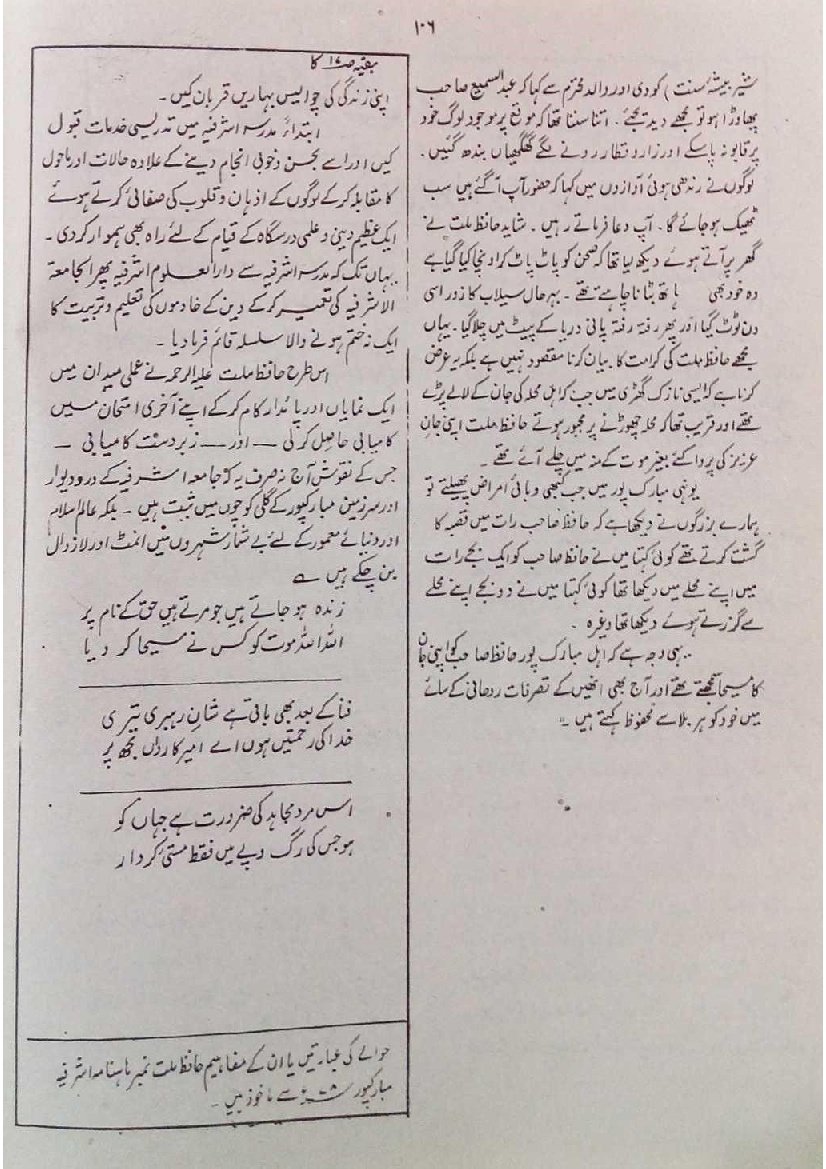 ۱۰۶
شیر بیشۂ سنت) کو دی اور والد محترم سے کہا کہ عبدالسمیع صاحب
پھاوڑا ہو تو مجھے دید یجئے۔ اتنا سننا تھا کہ موقع پر موجود لوگ خود
پر قابو نہ پاسکے اور زار و قطار رونے لگے گھگھیاں بندھ گئیں۔
لوگوں نے رندھی ہوئی آوازوں میں کہا کہ حضور آپ آگئے ہیں سب
ٹھیک ہو جائے گا۔ آپ دعا فرماتے رہیں۔ شاید حافظ ملت نے
گھر پر آتے ہوئے دیکھ لیا تھا کہ صحن کو پاٹ پاٹ کر اونچا کیا گیا ہے
وہ خود بھی ہاتھ بٹانا چاہتے تھے۔ بہرحال سیلاب کا زور اسی
دن ٹوٹ گیا اور پھر رفتہ رفتہ پانی دریا کے پیٹ میں چلا گیا۔ یہاں
مجھے حافظ ملت کی کرامت کا بیان کرنا مقصود نہیں ہے بلکہ یہ عرض
کرنا ہے کہ ایسی نازک گھڑی میں جب کہ اہل محلہ کی جان کے لالے پڑے
تھے اور قریب تھا کہ محلہ چھوڑنے پر مجبور ہوتے حافظ ملت اپنی جان
عزیز کی پروا کئے بغیر موت کے منہ میں چلے آئے تھے۔
یونہی مبارک پور میں جب کبھی وبائی امراض پھیلتے تو
ہمارے بزرگوں نے دیکھا ہے کہ حافظ صاحب رات میں قصبہ کا
گشت کرتے تھے کوئی کہتا میں نے حافظ صاحب کو ایک بجے رات
میں اپنے محلے میں دیکھا تھا کوئی کہتا میں نے دو بجے اپنے محلے
سے گزرتے ہوئے دیکھا تھا وغیرہ۔
یہی وجہ ہے کہ اہل مبارک پور حافظ صاحب کو اپنی جان
کا مسیحا سمجھتے تھے اور آج بھی انھیں کے تصرفات روحانی کے سائے
میں خود کو ہر بلا سے محفوظ کہتے ہیں۔
بقیہ صـ ۱۷ کا
اپنی زندگی کی چوالیس بہاریں قربان کیں۔
ابتداءً مدرسہ اشرفیہ میں تدریسی خدمات قبول
کیں اور اسے بحسن وخوبی انجام دینے کے علاوہ حالات اور ماحول
کا مقابلہ کر کے لوگوں کے اذہان و قلوب کی صفائی کرتے ہوئے
ایک عظیم دینی وعلمی درسگاہ کے قیام کے لئے راہ بھی ہموار کردی۔
یہاں تک کہ مدرسہ اشرفیہ سے دارالعلوم اشرفیہ پھر الجامعۃ
الاشرفیہ کی تعمیر کر کے دین کے خادموں کی تعلیم و تربیت کا
ایک نہ ختم ہونے والا سلسلہ قائم فرما دیا۔
اس طرح حافظ ملت علیہ الرحمہ نے عملی میدان میں
ایک نمایاں اور پائدار کام کر کے اپنے آخری امتحان میں
کامیابی حاصل کرلی — اور — زبردست کامیابی —
جس کے نقوش آج نہ صرف یہ کہ جامعہ اشرفیہ کے در و دیوار
اور سرزمین مبارکپور کے گلی کوچوں میں ثبت ہیں۔ بلکہ عالم اسلام
اور دنیائے معمور کے لئے بے شمار شہروں میں انمٹ اور لازوال
بن چکے ہیں ؎
زندہ ہو جاتے ہیں جو مرتے ہیں حق کے نام پر
اللہ اللہ موت کو کس نے مسیحا کر دیا
فنا کے بعد بھی باقی ہے شان رہبری تیری
خدا کی رحمتیں ہوں اے امیر کارواں تجھ پر
اس مرد مجاہد کی ضرورت ہے جہاں کو
ہو جس کی رگ و پے میں فقط مستیٔ کردار
حوالے کی عبارتیں یا ان کے مفاہیم حافظ ملت نمبر ماہنامہ اشرفیہ
مبارکپور سے ماخوذ ہیں۔